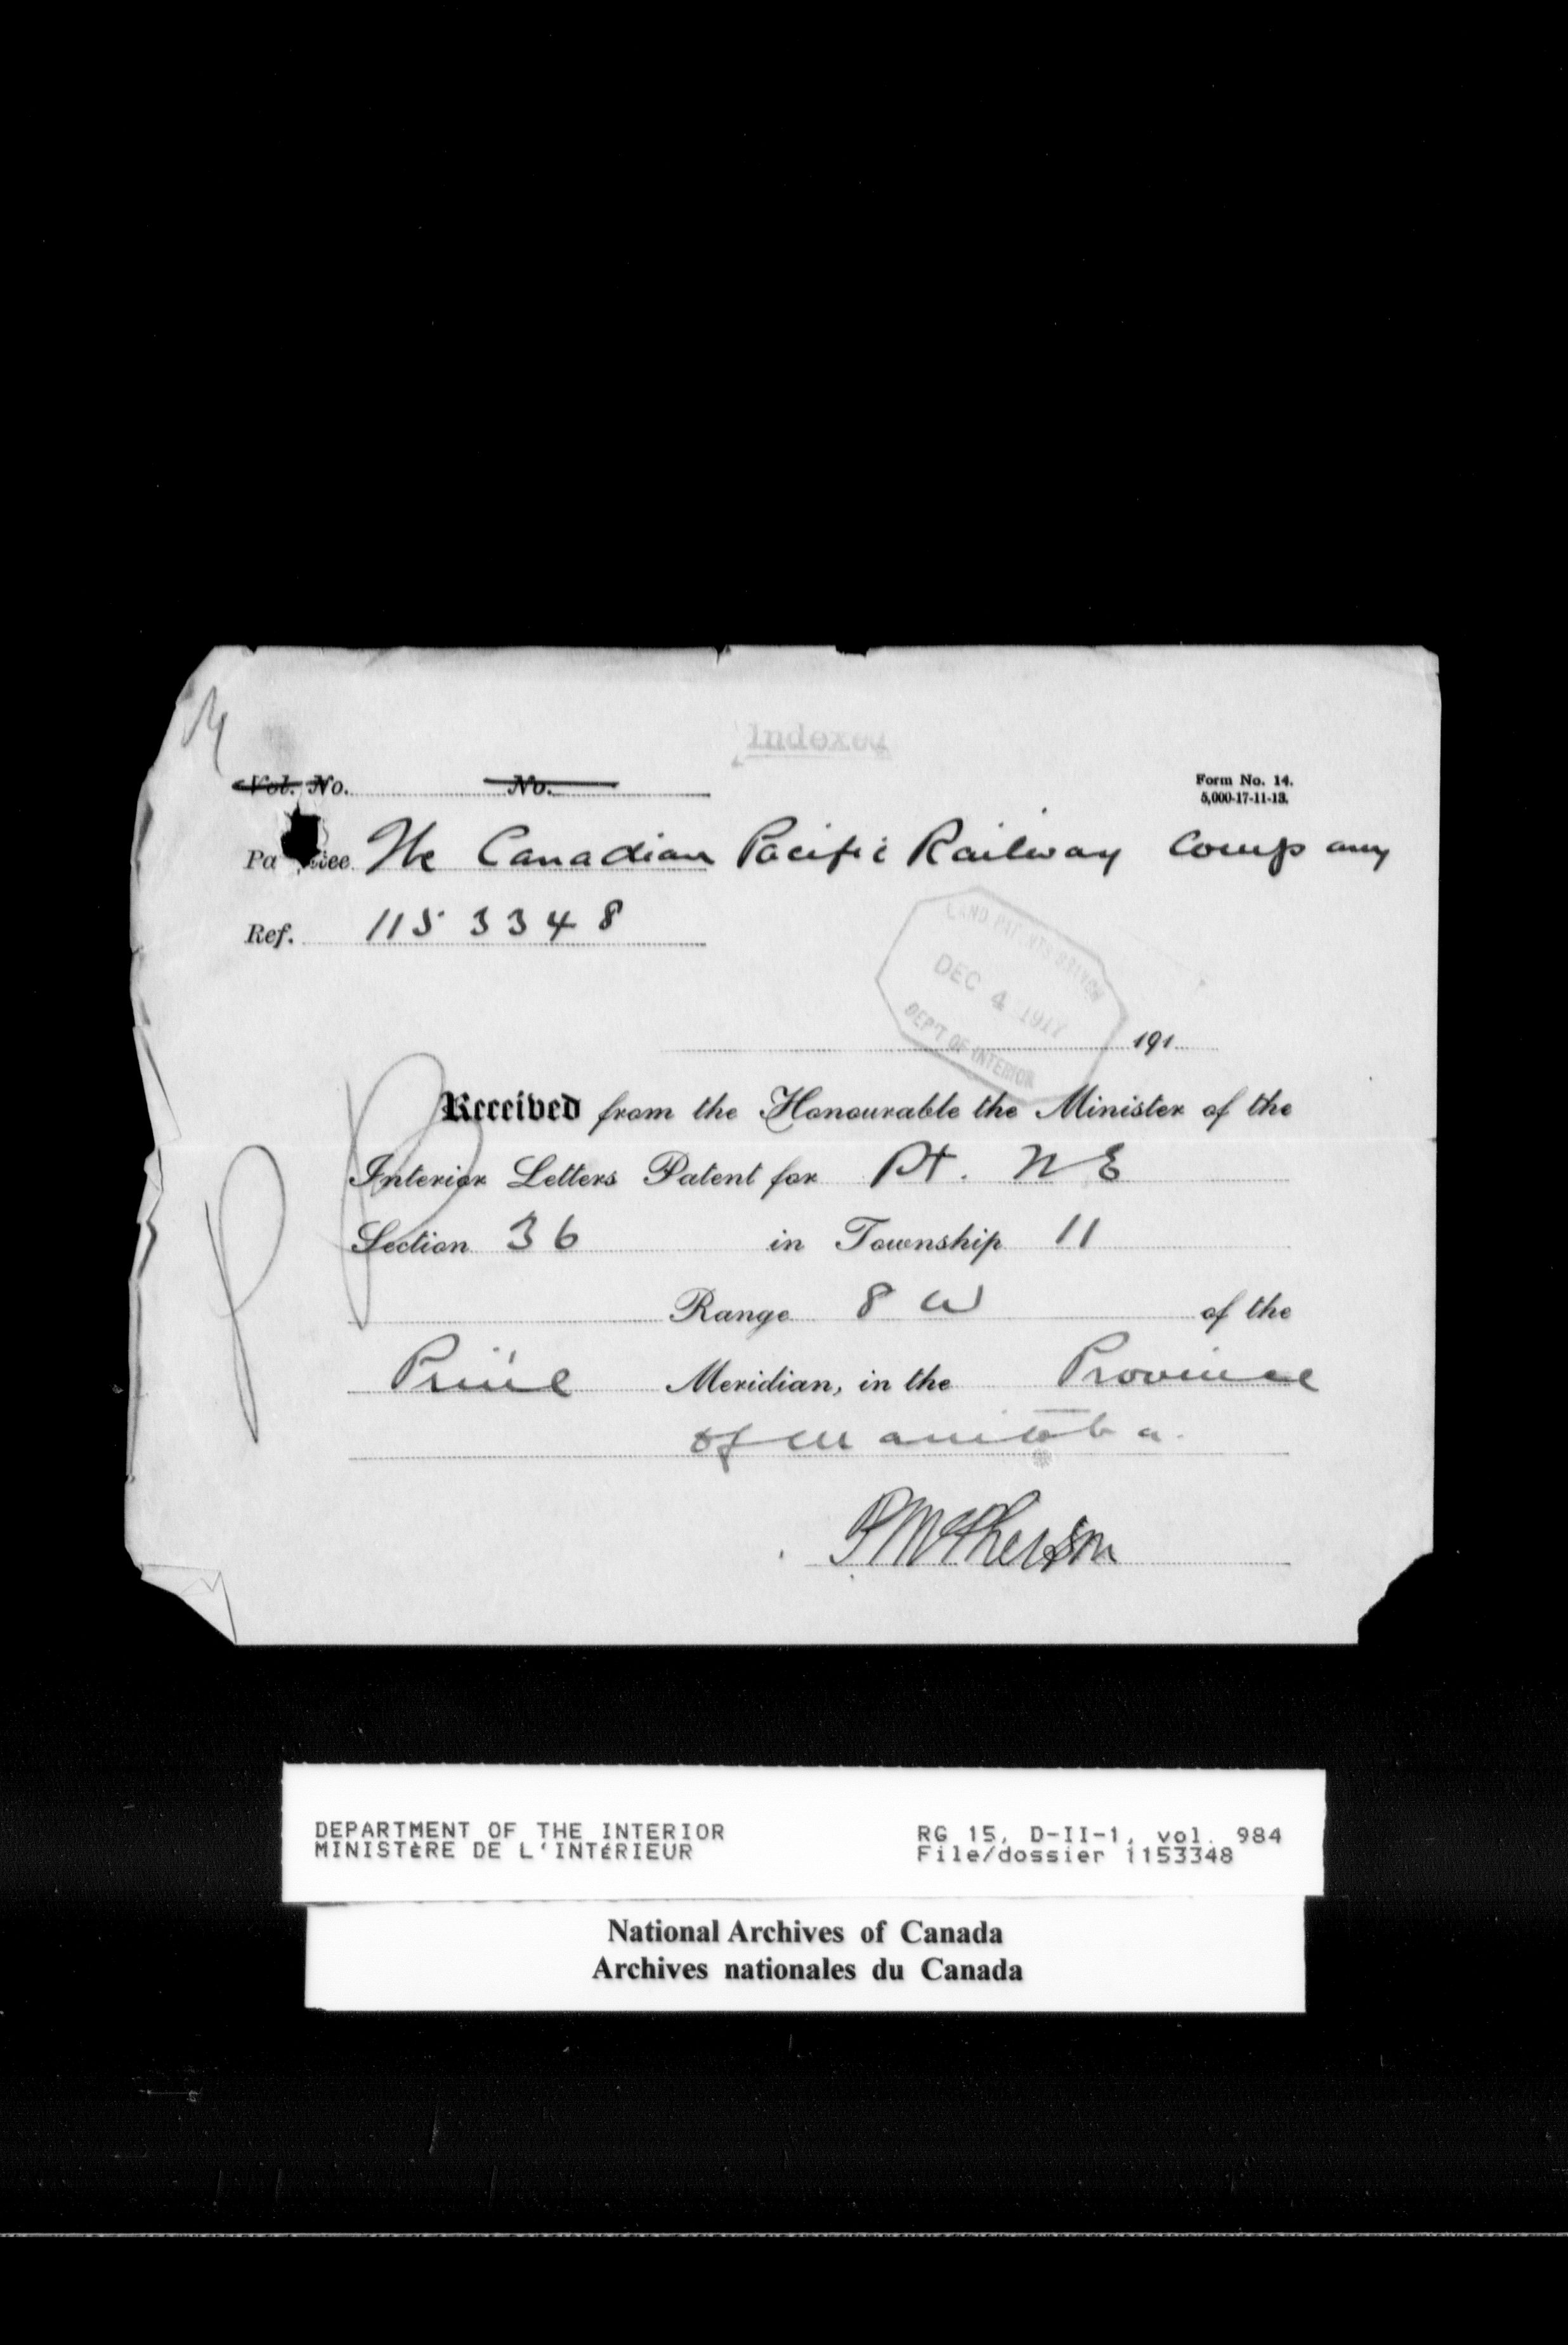 Indexed
Vol. No. No.
Form No. 14.
5,000-17-11-13.
The Canadian Pacific Railway Company
Ref. 1153348
LAND PATENTS BRANCH
DEC 4 1917
DEP'T OF INTERIOR
191
Received from the Honourable the Minister of the
Interior Letters Patent for Pt. NE
Section 36 in Township 11
Range 8 W of the
Prime Meridian, in the Province
of Manitoba.
DEPARTMENT OF THE INTERIOR
MINISTÈRE DE L'INTÉRIEUR
RG 15, D-II-1, vol. 984
File/dossier 1153348
National Archives of Canada
Archives nationales du Canada